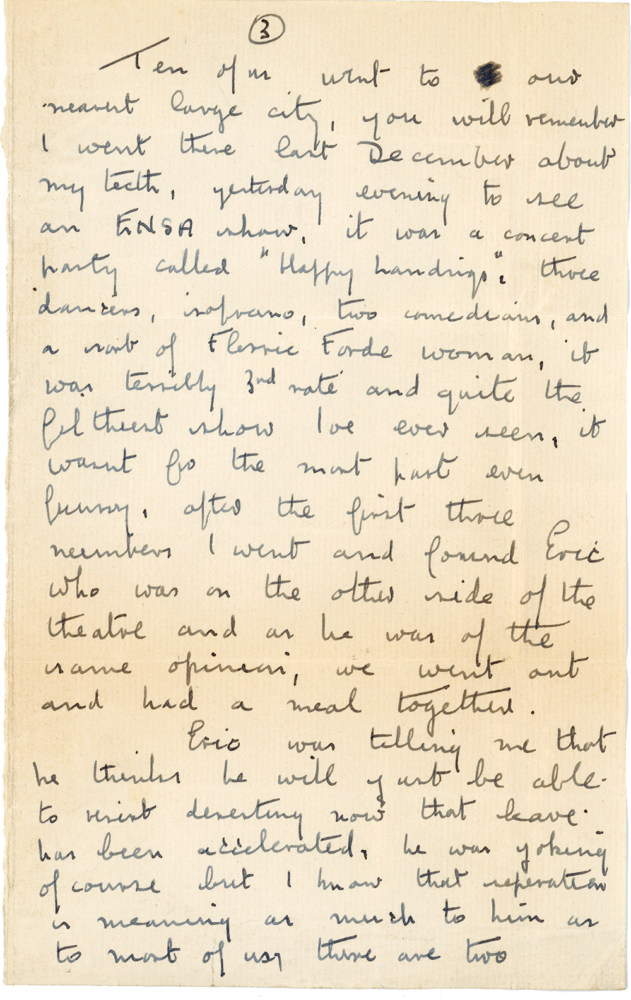 3
Ten of us went to our
nearest large city, you will remember
I went there last December about
my teeth, yesterday evening to see
an ENSA show, it was a concert
party called "Happy Landings", three
dancers, soprano, two comedians, and
a sort of Florrie Forde woman, it
was terribly 3rd rate and quite the
filthiest show I've ever seen, it
wasnt for the most part even
funny, after the first three
numbers I went and found Eric
who was on the other side of the
theatre and as he was of the
same opinion, we went out
and had a meal together.
Eric was telling me that
he thinks he will just be able
to resist deserting now that leave
has been accelerated, he was yoking
of course but I know that seperation
is meaning as much to him as
to most of us, there are two